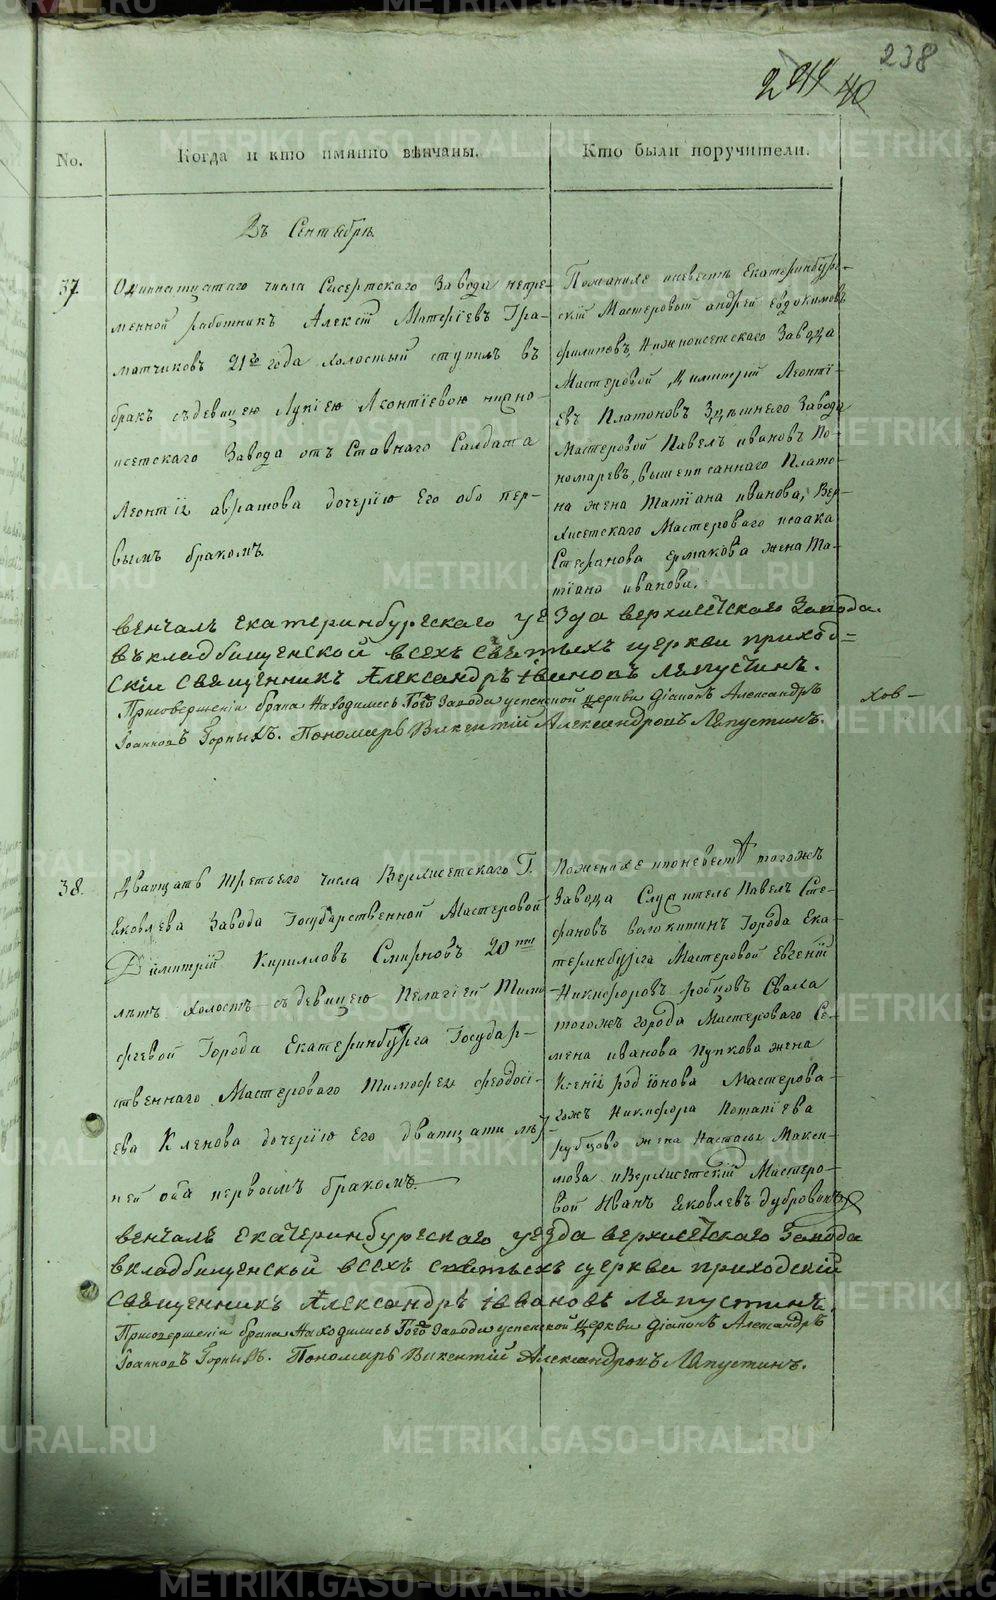 238
2
No.
Когда и кто имянно вѣнчаны.
Кто были поручители.
Въ Сентябрѣ
37.
Одиннатцатаго числа Сысертского Завода непре-
менной работникъ Алексѣй Матфіевъ
21го года холостый ступилъ въ
бракъ съ девицею Лукіею Леонтіевою нижно-
исетскаго Завода отъ Ставнаго Салдата
Леонтія дочерію Его оба пер-
вымъ бракомъ.
По женихе и невесть Екатеринбург-
скій Мастеровый андрей Евдокимовъ
филиповъ, Нижноисетскаго Завода
Мастеровой Димитрій Леонті-
евъ Платоновъ Здешнего Завода
Мастеровой Павелъ ивановъ По-
номаревъ, вышеписаннаго Плато-
на жена Татіана иванова, Вер-
хисетскаго Мастероваго исаака
Стефанова ермакова жена Та-
тіана иванова.
венчалъ екатеринбургскаго уезда верхисетскаго завода.
въкладбищенской всехъ святыхъ церкви приход=
скій священникъ Александръ івановъ Лапустинъ.
При совершеніи брака Находились Того Завода успенской Церкви діаконъ Александръ
Іоанновъ Горныхъ. Пономарь Викентій Александровъ Лапустинъ.
хов-
38.
Дватцать третьего числа Верхисетскаго Г.
Яковлева Завода Государственной Мастеровой
Димитрій Кирилловъ Смирновъ 20ти
летъ холостъ съ девицею Пелагіей Тимо
феевой Города Екатеринбурга Государ-
ственнаго Мастероваго Тимофея феодосі-
ева Кленова дочерію Его дватцати лѣт-
ней оба первымъ бракомъ
По женихе и по невесте тогожъ
Завода Служитель Павелъ Сте-
фановъ волокитинъ Города Ека-
теринбурга Мастеровой Евгеній
Никифоровъ Сваха
тогожъ города Мастероваго Се-
мена иванова Пупкова жена
Ксенія родіонова Мастерова-
гожъ Никифора Потапіева
рубцова жена Настасья Макси-
мова и Верхисетскій Мастеро-
вой Иванъ Яковлевъ дубровинъ
венчалъ екатеринбургскаго уезда верхисетскаго Завода
в кладбищенской всехъ святыхъ церкви приходскій
священникъ Александръ івановъ Лапустинъ.
При совершеніи брака Находились Того Завода успенской Церкви діаконъ Александръ
Іоанновъ Горныхъ. Пономарь Викентій Александровъ Лапустинъ.
METRIKI.GASO-URAL.RU